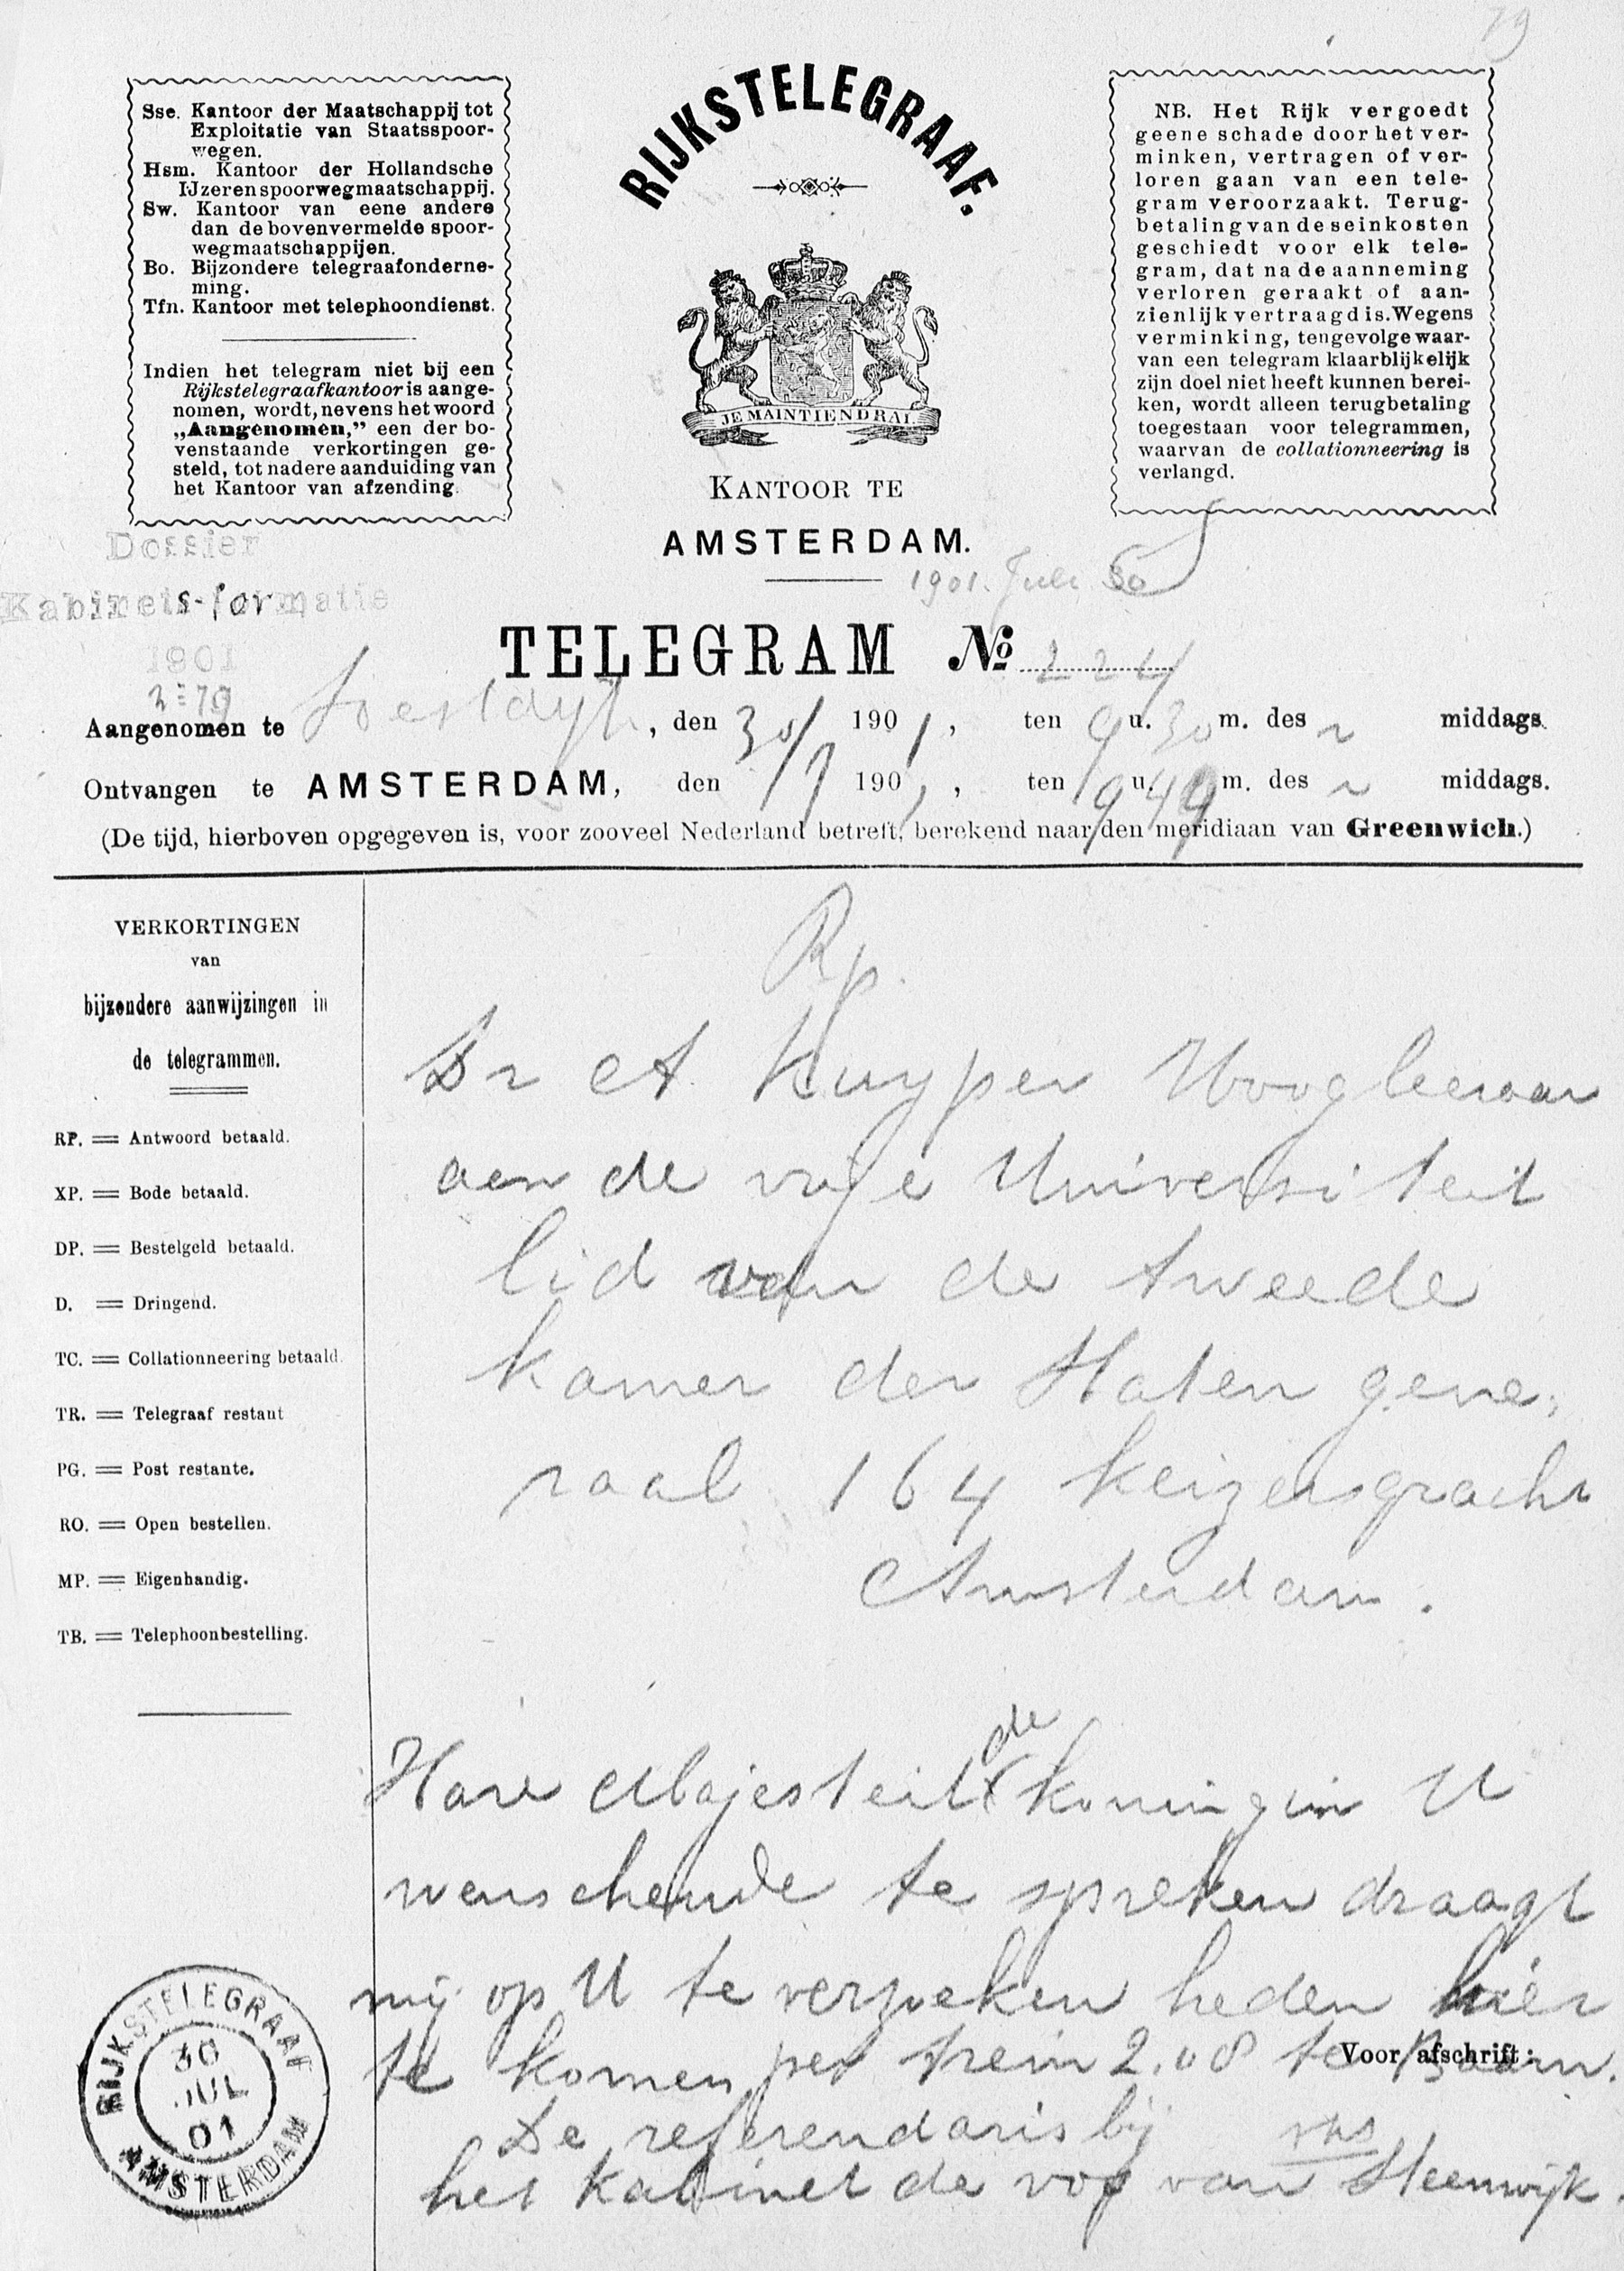 79
Sse. Kantoor der Maatschappij tot
Exploitatie van Staatsspoor-
wegen.
Hsm. Kantoor der Hollandsche
IJzerenspoorwegmaatschappij.
Sw. Kantoor van eene andere
dan de bovenvermelde spoor-
wegmaatschappijen.
Bo. Bijzondere telegraafonderne-
ming.
Tfn. Kantoor met telephoondienst.
Indien het telegram niet bij een
Rijkstelegraafkantoor is aange-
nomen, wordt, nevens het woord
„Aangenomen,” een der bo-
venstaande verkortingen ge-
steld, tot nadere aanduiding van
het Kantoor van afzending.
RIJKSTELEGRAAF.
JE MAINTIENDRAI.
KANTOOR TE
AMSTERDAM.
NB. Het Rijk vergoedt
geene schade door het ver-
minken, vertragen of ver-
loren gaan van een tele-
gram veroorzaakt. Terug-
betaling van de seinkosten
geschiedt voor elk tele-
gram, dat na de aanneming
verloren geraakt of aan-
zienlijk vertraagd is. Wegens
verminking, tengevolge waar-
van een telegram klaarblijkelijk
zijn doel niet heeft kunnen berei-
ken, wordt alleen terugbetaling
toegestaan voor telegrammen,
waarvan de collationneering is
verlangd.
Dossier
Kabinets-formatie
1901
1901. Juli 30
TELEGRAM No. 224
Aangenomen te Soestdijk, den 30/7 1901, ten 9 u. 30 m. des v middags.
Ontvangen te AMSTERDAM, den /7 1901, ten 9 u. 49 m. des v middags.
(De tijd, hierboven opgegeven is, voor zooveel Nederland betreft, berekend naar den meridiaan van Greenwich.)
VERKORTINGEN
van
bijzondere aanwijzingen in
de telegrammen.
RP. = Antwoord betaald.
XP. = Bode betaald.
DP. = Bestelgeld betaald.
D. = Dringend.
TC. = Collationneering betaald.
TR. = Telegraaf restant
PG. = Post restante.
RO. = Open bestellen.
MP. = Eigenhandig.
TB. = Telephoonbestelling.
Rp.
Dr A. Kuyper Hoogleeraar
aan de vrije Universiteit
lid van de tweede
kamer der Staten gene-
raal 164 keizersgracht
Amsterdam.
Hare Majesteit de koningin U
wenschende te spreken draagt
mij op U te verzoeken heden hier
te komen per trein 2.08 te Baarn.
Voor afschrift:
De referendaris bij
het kabinet de vos van Steenwijk.
vos
RIJKSTELEGRAAF
30
JUL
01
AMSTERDAM